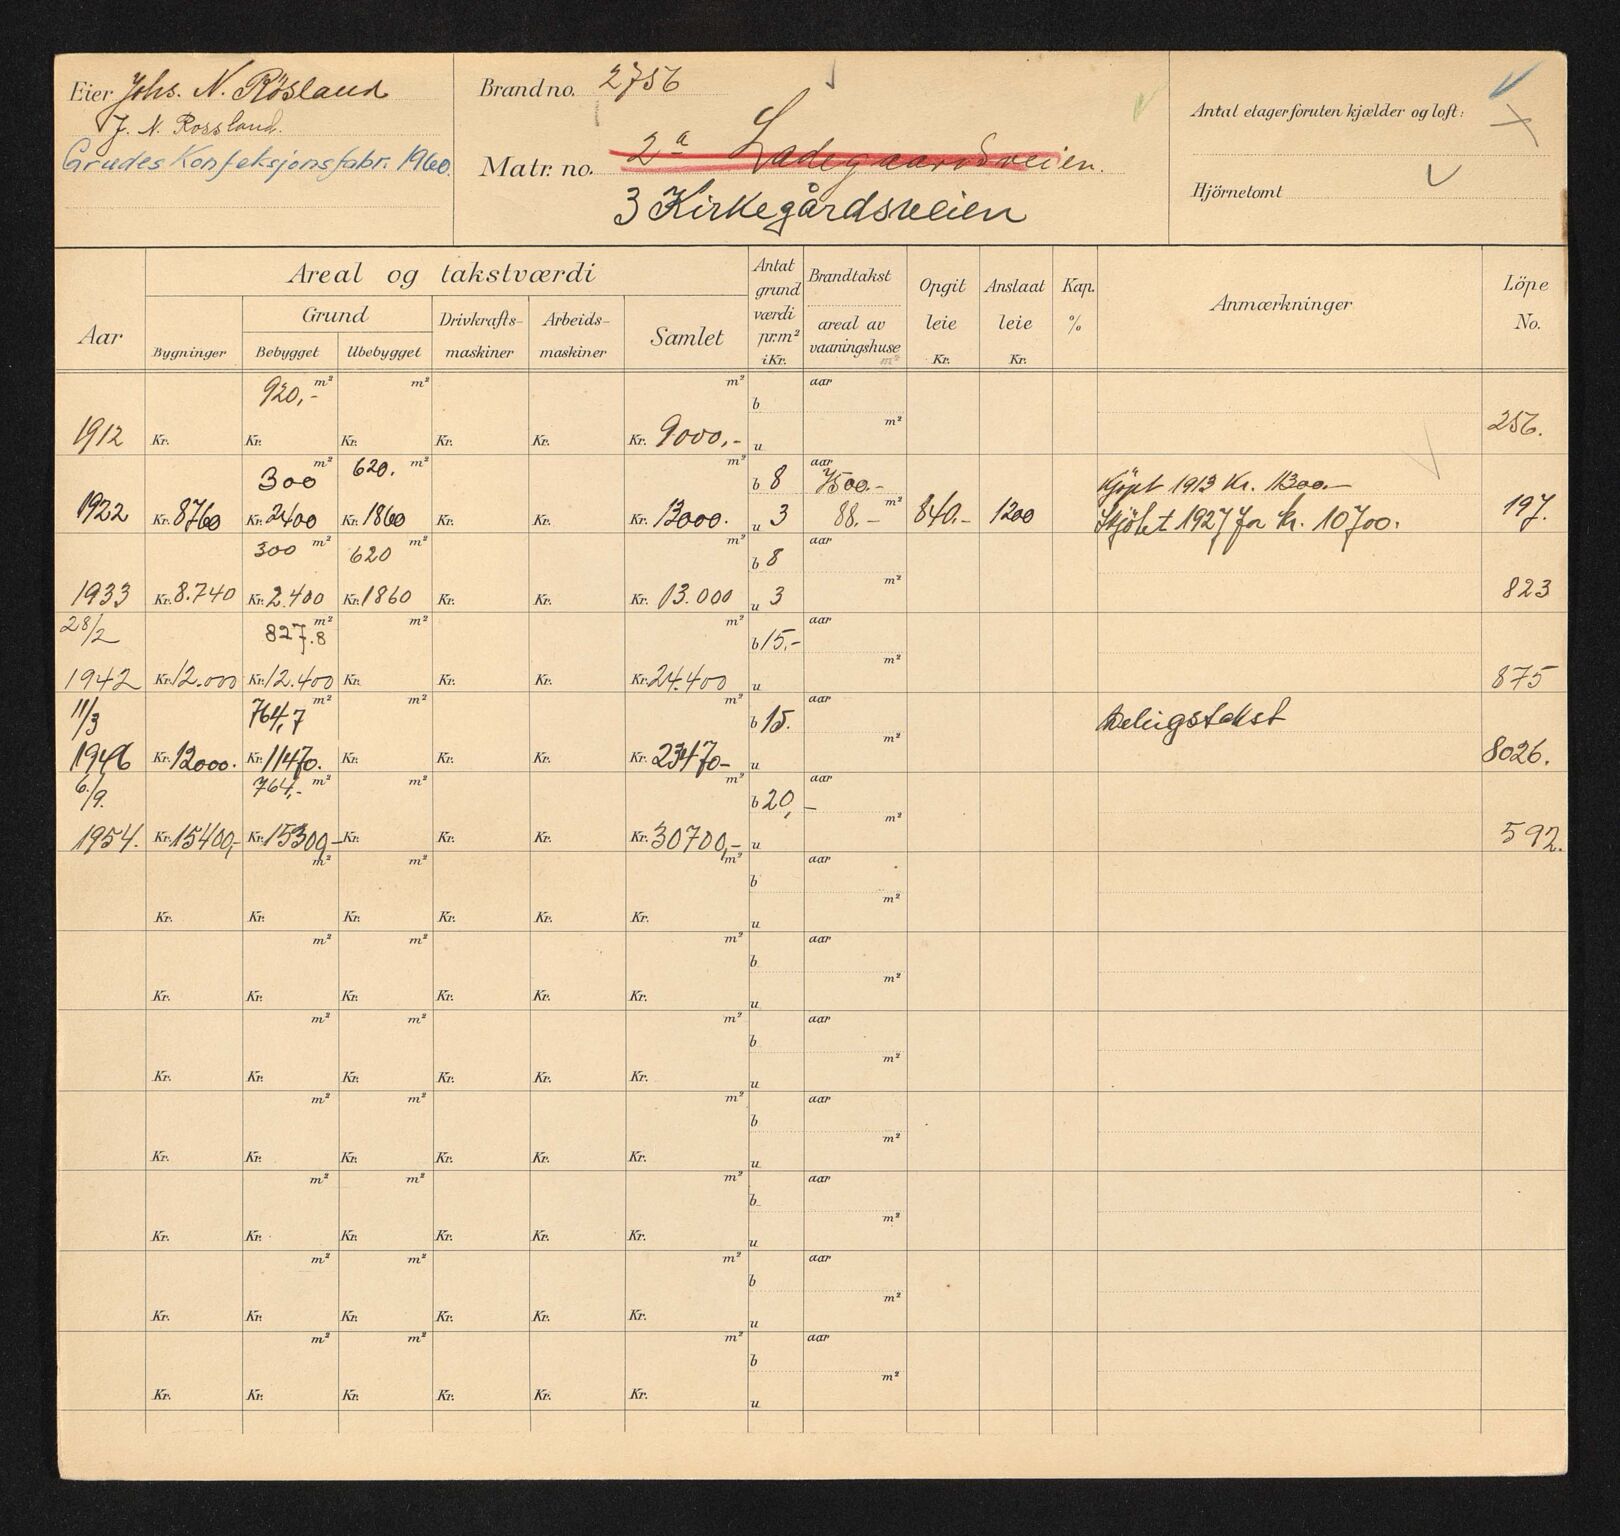 Eier Johs. N. Røsland
J. N. Rossland.
Grudes Konfeksjonsfabr. 1960.
Brand no. 2756
Matr. no. 2a Ladegaardsveien.
3 Kirkegårdsveien
Antal etager foruten kjælder og loft:
Hjörnetomt
Aar
Areal og takstværdi
Bygninger
Grund
Bebygget Ubebygget
Drivkrafts-
maskiner
Arbeids-
maskiner
Samlet
Antat
grund
værdi
pr.m²
i Kr.
Brandtakst
areal av
vaaningshuse
m²
Opgit
leie
Kr.
Anslaat
leie
Kr.
Kap.
%
Anmærkninger
Löpe
No.
920,- m² m² m² b aar
1912 Kr. Kr. Kr. Kr. Kr. Kr. 9000,- u m² 256.
300 m² 620. m² m² b 8 aar 7500.- Kjöpt 1913 Kr. 11300.-
1922 Kr. 8760 Kr. 2400 Kr. 1860 Kr. Kr. Kr. 13000. u 3 88.- m² 840.- 1200 Skjötet 1927 for kr. 10700. 197.
300 m² 620 m² m² b 8 aar
1933 Kr. 8.740 Kr. 2.400 Kr. 1860 Kr. Kr. Kr. 13.000 u 3 m² 823
28/2 827.8 m² m² m² b 15,- aar
1942 Kr. 12.000 Kr. 12.400 Kr. Kr. Kr. Kr. 24.400 u m² 875
11/3 764,7 m² m² m² b 15. aar
1946 Kr. 12000. Kr. 11470. Kr. Kr. Kr. Kr. 23470- u m² 8026.
6/9. 764,- m² m² m² b 20,- aar
1954. Kr. 15400,- Kr. 15300,- Kr. Kr. Kr. Kr. 30700,- u m² 592.
m² m² m² b aar
Kr. Kr. Kr. Kr. Kr. Kr. u m²
m² m² m² b aar
Kr. Kr. Kr. Kr. Kr. Kr. u m²
m² m² m² b aar
Kr. Kr. Kr. Kr. Kr. Kr. u m²
m² m² m² b aar
Kr. Kr. Kr. Kr. Kr. Kr. u m²
m² m² m² b aar
Kr. Kr. Kr. Kr. Kr. Kr. u m²
m² m² m² b aar
Kr. Kr. Kr. Kr. Kr. Kr. u m²
m² m² m² b aar
Kr. Kr. Kr. Kr. Kr. Kr. u m²